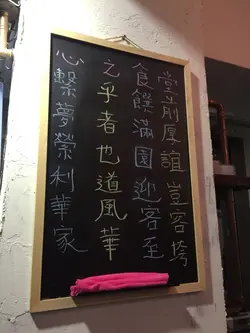 堂前厦誼豈客垮
食饌滿園迎客至
之乎者也道風華
心繫夢縈利華家